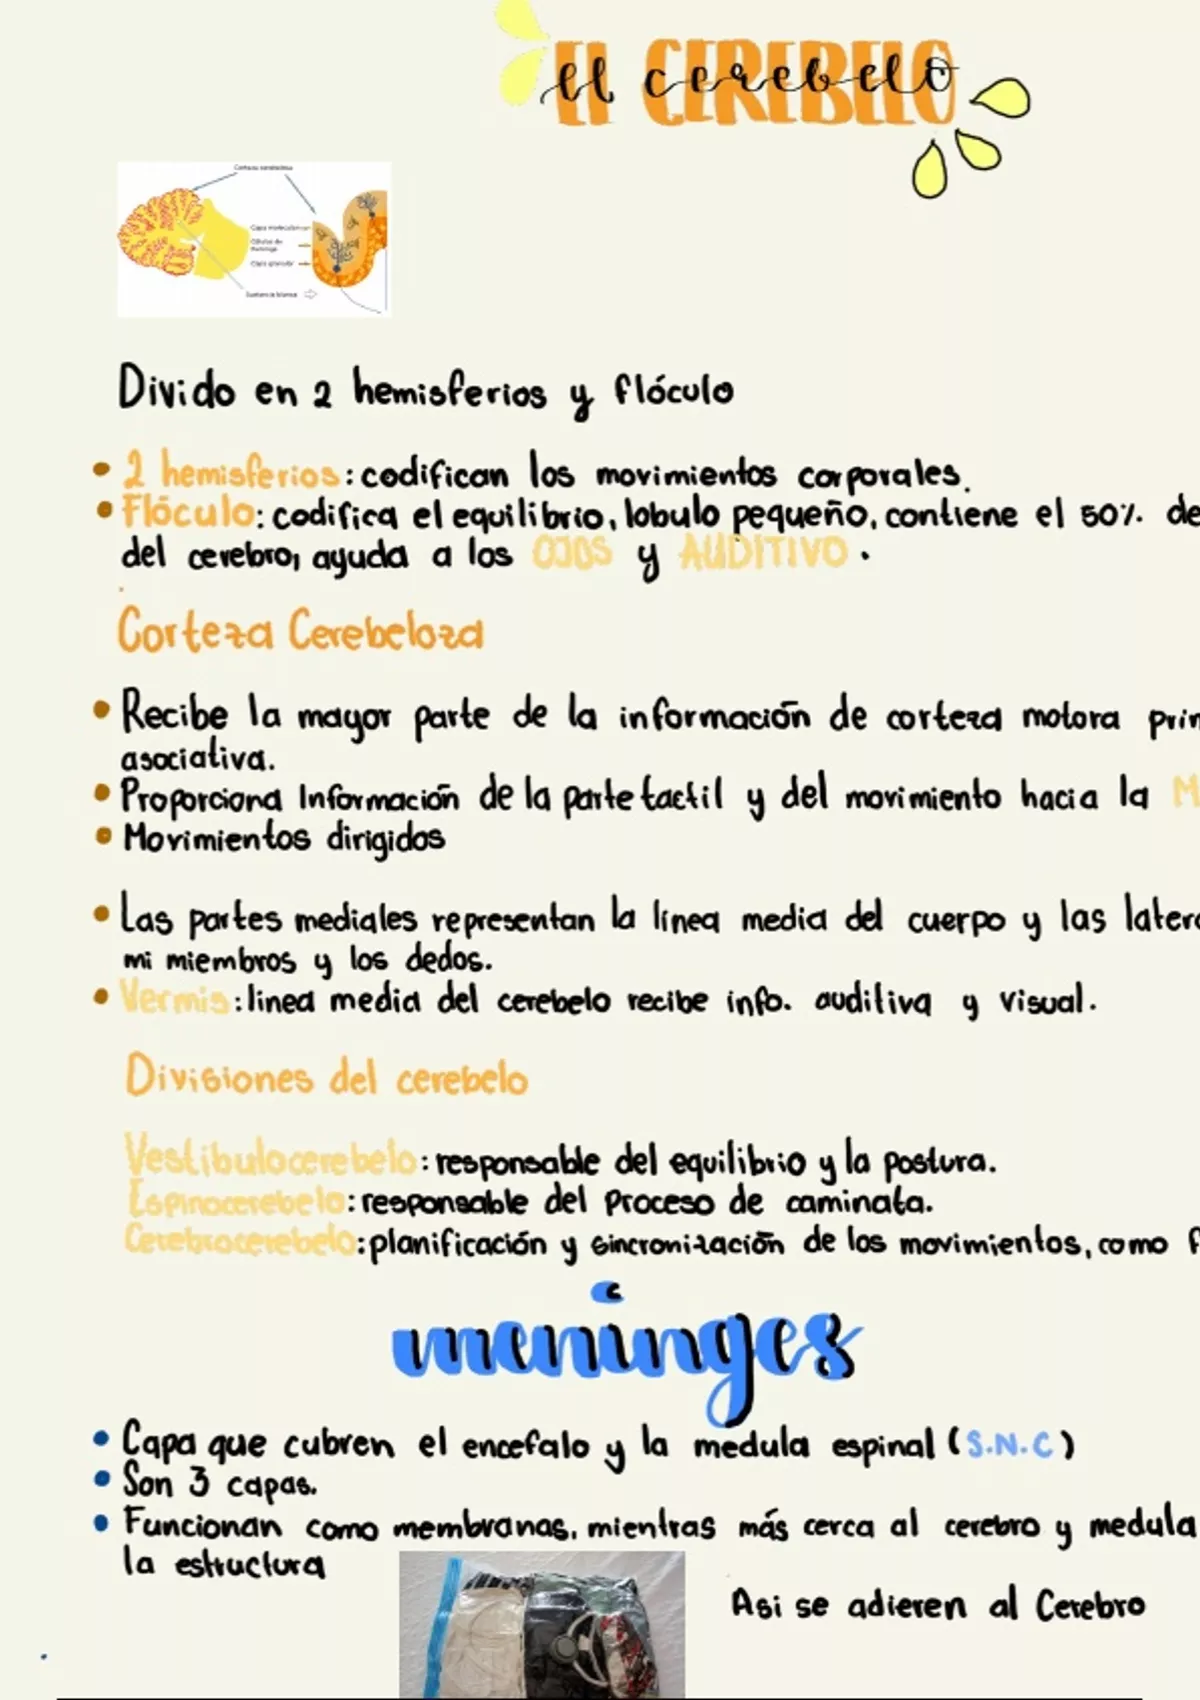 el cerebelo
EL CEREBELO
Corteza cerebelosa
Capa molecular
Células de
Purkinje
Capa granular
Sustancia blanca
Divido en 2 hemisferios y flóculo
2 hemisferios: codifican los movimientos corporales.
Flóculo: codifica el equilibrio, lobulo pequeño, contiene el 50% de
del cerebro, ayuda a los OJOS y AUDITIVO.
Corteza Cerebeloza
Recibe la mayor parte de la información de corteza motora prim
asociativa.
Proporciona Información de la parte tactil y del movimiento hacia la M
Movimientos dirigidos
Las partes mediales representan la línea media del cuerpo y las latera
mi miembros y los dedos.
Vermis: linea media del cerebelo recibe info. auditiva y visual.
Divisiones del cerebelo
Vestibulocerebelo: responsable del equilibrio y la postura.
Espinocerebelo: responsable del Proceso de caminata.
Cerebrocerebelo: planificación y sincronización de los movimientos, como f
meninges
Capa que cubren el encefalo y la medula espinal (S.N.C)
Son 3 capas.
Funcionan como membranas, mientras más cerca al cerebro y medula
la estructura
Asi se adieren al Cerebro